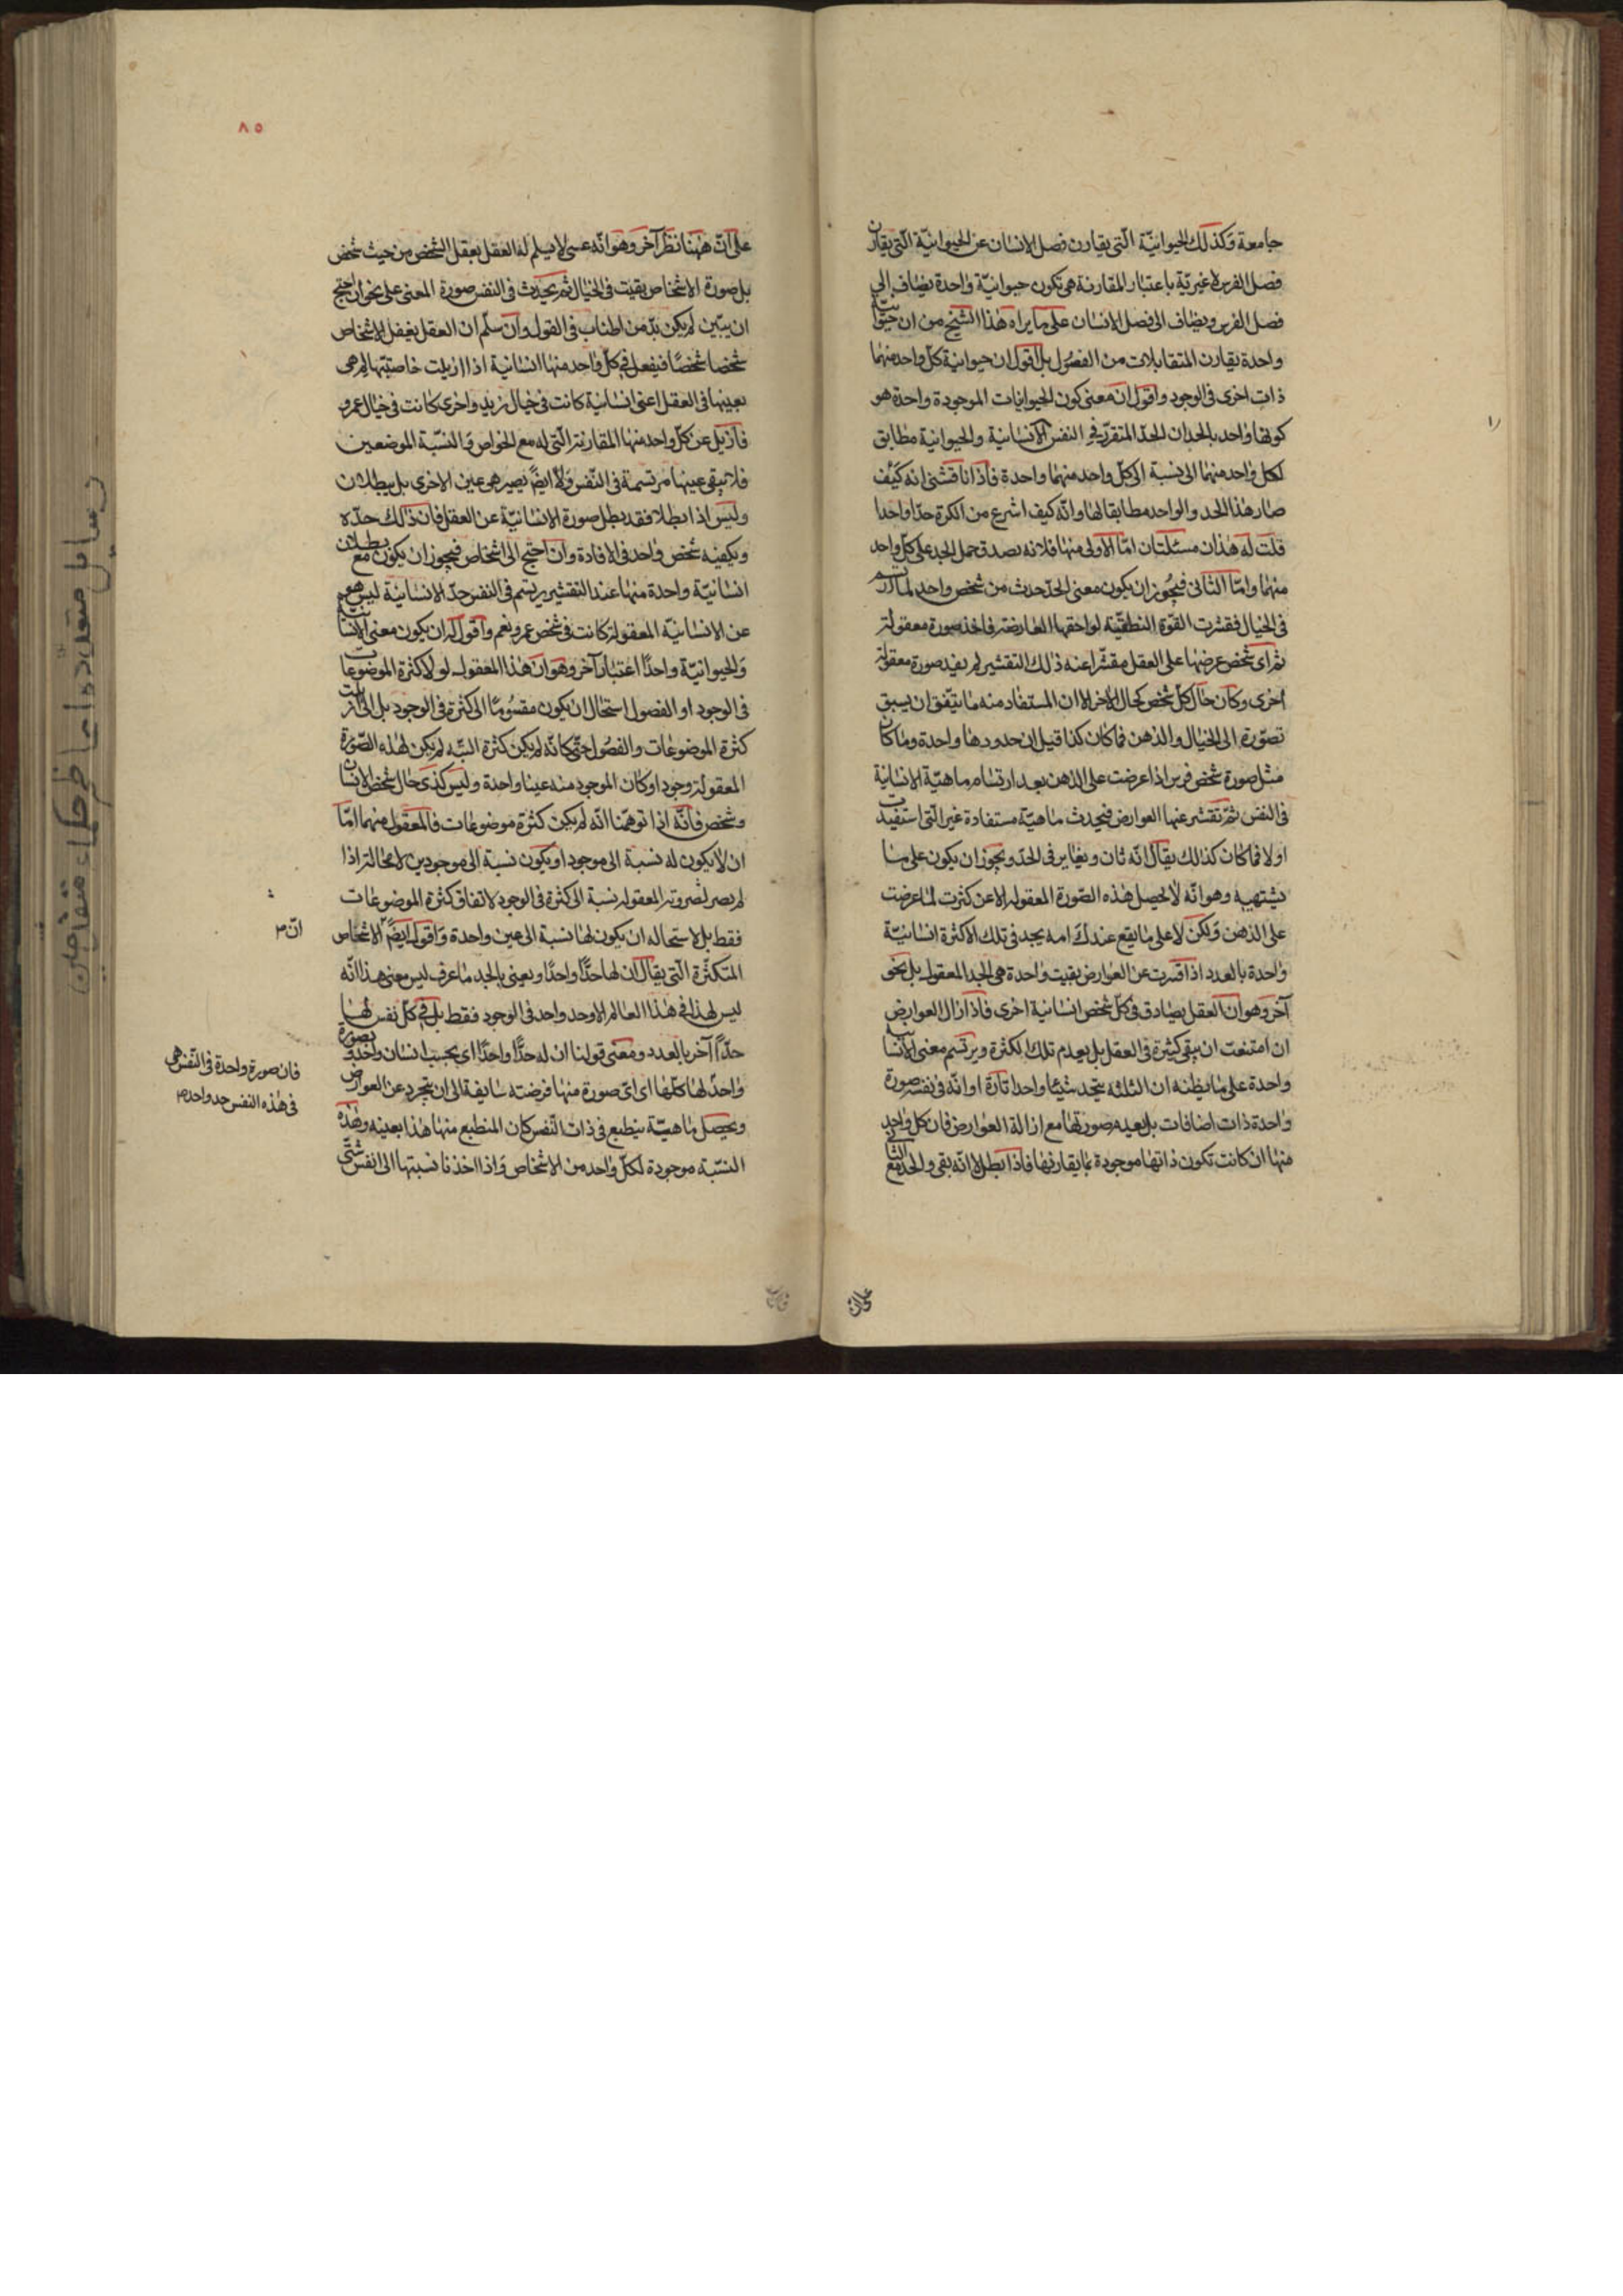 جامعة وكذلك الحيوانيّة الّتى يقارن فصل الانسان عن الحيوانيّة الّتى يقارن
فصل الفرس لا غيريّة باعتبار المقارنة هى تكون حيوانيّة واحدة يضاف الى
فصل الفرس ويضاف الى فصل الانسان على ما يراه هذا الشيخ من ان حيوانيّة
واحدة يقارن المتقابلات من الفصول بل اقول ان حيوانية كلّ واحد منهما
ذات اخرى فى الوجود واقول ان معنى كون الحيوانات الموجودة واحدة هو
كونها واحد بالحد ان الحدّ المتقرّر فى النفس الانسانية والحيوانية مطابق
لكل واحد منهما الى نسبة الى كلّ واحد منهما واحدة فاذا ناقشنى انه كيف
صار هذا الحد والواحد مطابقا لها وانّه كيف انتزع من الكثرة حدّا واحدا
قلت له هذان مسئلتان امّا الاولى منها فلانه يصدق حمل الحد على كلّ واحد
منهما وامّا الثانى فيجوز ان يكون معنى الحدّ حدث من شخص واحد لما ارتسم
فى الخيال فقشرت القوّة النطقيّة لواحقها العارضة فاخذ صورة معقولة
ثم اى شخص عرضها على العقل مقشّرا عنه ذلك التقشير لم يفد صورة معقولة
اخرى وكان حال كلّ شخص كحال الآخر الا ان المستفاد منه ما يتّفق ان يسبق
تصوّره الى الخيال والذهن فما كان كذا قيل ان حدودها واحدة وما كان
مثل صورة شخص فرس اذا عرضت على الذهن بعد ارتسام ماهيّة الانسانية
فى النفس ثمّ تقشر عنها العوارض فيحدث ماهيّة مستفادة غير الّتى استفيدت
اولا فما كان كذالك يقال انّه ثان ويغاير فى الحدّ ويجوز ان يكون على ما
يشتهيه وهو انّه لا يحصل هذه الصّورة المعقولة الا عن كثرت لما عرضت
على الذهن ولكن لا على ما يقع عندك انه يجد فى تلك الاكثرة انسانيّة
واحدة بالعدد اذا قشرت عن العوارض بقيت واحدة هى الحد المعقول بل نحو
آخر وهو ان العقل يصادف فى كلّ شخص انسانية اخرى فاذا ازال العوارض
ان امتنعت ان يبقى كثيرة فى العقل بل يعدم تلك الكثرة ويرتسم معنى الانسانية
واحدة على ما يظنه ان الثلثه يتحد شيئا واحدا تارة او انّه فى نفسه صورة
واحدة ذات اضافات بل بعينه صورتها مع ازالة العوارض فان كل واحد
منها ان كانت تكون ذاتها موجودة بما يقارنها فاذا بطل لا انّه بقى والحد مع الثانى
٨٥
على انّ ههنا نظر آخر وهو انّه عسى لا يسلم له العقل يعقل الشخص من حيث شخص
بل صورة الاشخاص بقيت فى الخيال ثم يحدث فى النفس صورة المعنى على نحو ان احتج
ان يبيّن لم يكن بدّ من اطناب فى القول وان سلّم ان العقل يعقل الاشخاص
شخصا شخصًا فيفعل فى كلّ واحد منها انسانية اذا ازيلت خاصتيّها لم هى
بعينها فى العقل اعنى انسانية كانت فى خيال زيد واخرى كانت فى خيال عمرو
فازيل عن كلّ واحد منها المقارنة الّتى له مع الخواص والنسبة الموضعين
فلا تبقى عينها مرتسمة فى النّفس ولا ايضً يصير هى عين الاخرى بل يبطلان
وليس اذا بطلا فقد بطل صورة الانسانيّة عن العقل فان ذالك حدّه
ويكفيه شخص واحد فى الافادة وان احتج الى اشخاص فيجوز ان يكون مع بطلان
انسانيّة واحدة منها عند التقشير يرتسم فى النفس حدّ الانسانية ليس هو
عن الانسانيّة المعقولة كانت فى شخص عمرو نعم واقول له ان يكون معنى الانسانية
والحيوانيّة واحدًا اعتبار آخر وهو ان هذا المعقول لو لا كثرة الموضوعات
فى الوجود او الفصول استحال ان يكون مقسومًا الى كثرة فى الوجود بل الى ارتبت
كثرة الموضوعات والفصول حتّى كانّه لم يكن كثرة البتّه لم يكن لهذه الصّورة
المعقولة وجود او كان الموجود منه عينا واحدة وليس كذى حال شخص الانسان
وشخص فانّه اذا توهّمنا انّه لم يكن كثرة موضوعات فالمعقول منهما امّا
ان لا يكون له نسبة الى موجود او يكون نسبة الى موجودين لا محالة اذا
لم يصر لضرورته المعقوله نسبة الى كثرة فى الوجود لاتفاق كثرة الموضوعات
فقط بل لاستحاله ان يكون لها نسبة الى عين واحدة واقول ايضً الاشخاص
انّ م
المتكثّرة الّتى يقال ان لها حدًّا واحدًا ويعنى بالحد ما عرف ليس معنى هذا انّه
ليس لهذا فى هذا العالم الا وحد واحد فى الوجود فقط بل فى كلّ نفس لها
حدًّا آخر بالعدد ومعنى قولنا ان له حدًّا واحدًا اى بحسب انسان واحد وبصورة
فان صورة واحدة فى النّفس هى
فى هذه النفس حد واحد م
واحدٍ لها كلّها اى اىّ صورة منها فرضته سابقة الى ان يتجرد عن العوارض
ويحصل ماهيّة ينطبع فى ذات النّفس كان المنطبع منها هذا بعينه وهذه
النسبة موجودة لكلّ واحد من الاشخاص واذا اخذنا نسبتها الى انفس شتّى